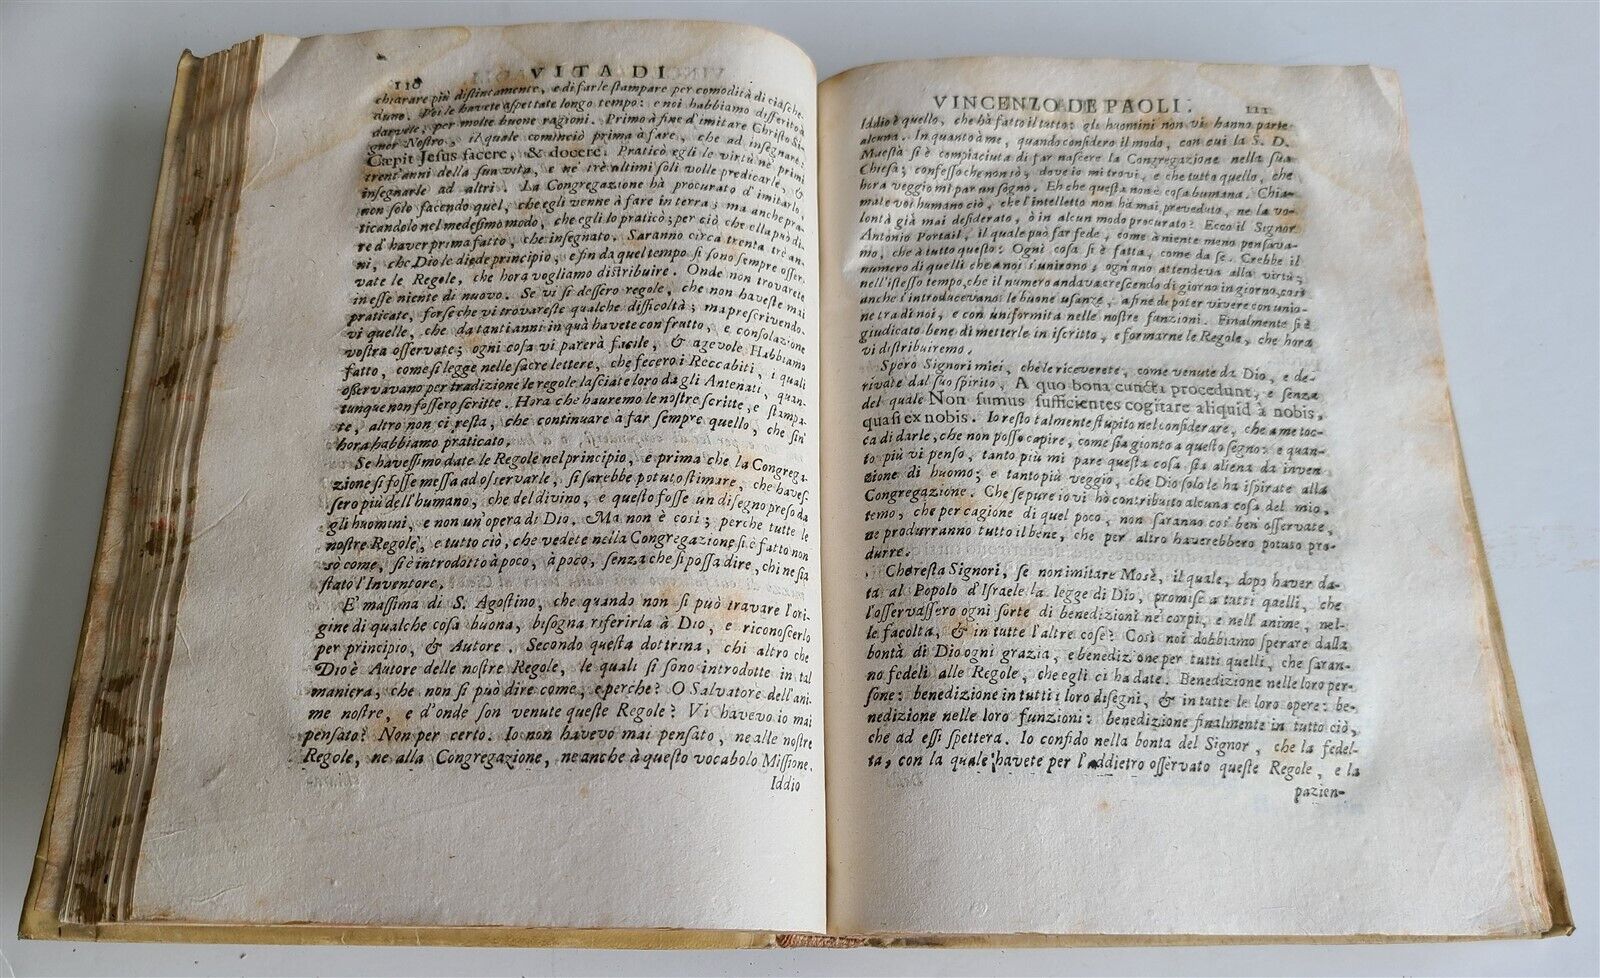 110 VITA DI
chiarare più distintamente, e di farle stampare per comodità di ciasche-
duno. Voi le havete aspettate longo tempo: e noi habbiamo differito à
darvele, per molte buone ragioni. Primo à fine d'imitare Christo Si-
gnor Nostro, il quale cominciò prima à fare, che ad insegnare:
Cœpit Jesus facere, & docere. Praticò egli le virtù ne' primi
trent'anni della sua vita, e ne' trè ultimi soli volle predicarle, &
insegnarle ad altri. La Congregazione hà procurato d'imitarlo,
non solo facendo quel, che egli venne à fare in terra; ma anche pra-
ticandolo nel medesimo modo, che egli lo praticò; per ciò che ella può di-
re d'haver prima fatto, che insegnato. Saranno circa trenta trè an-
ni, che Dio le diede principio; e fin da quel tempo si sono sempre osser-
vate le Regole, che hora vogliamo distribuire. Onde non trovarete
in esse niente di nuovo. Se vi si dessero regole, che non haveste mai
praticate, forse che vi trovareste qualche difficoltà; ma prescrivendo-
vi quelle, che da tanti anni in quà havete con frutto, e consolazione
vostra osservate; ogni cosa vi parerà facile, & agevole. Habbiamo
fatto, come si legge nelle sacre lettere, che fecero i Reccabiti, i quali
osservavano per tradizione le regole lasciate loro da gli Antenati, quan-
tunque non fossero scritte. Hora che hauremo le nostre scritte, e stampa-
te, altro non ci resta, che continuare à far sempre quello, che sin'
hora habbiamo praticato.
Se havessimo date le Regole nel principio, e prima che la Congrega-
zione si fosse messa ad osservarle, si sarebbe potuto stimare, che haves-
sero più dell'humano, che del divino, e questo fosse un disegno preso da
gli huomini, e non un'opera di Dio. Ma non è così; perche tutte le
nostre Regole, e tutto ciò, che vedete nella Congregazione si è fatto non
sò come, si è introdotto à poco, à poco, senza che si possa dire, chi ne sia
stato l'Inventore.
E' massima di S. Agostino, che quando non si può travare l'ori-
gine di qualche cosa buona, bisogna riferirla à Dio, e riconoscerlo
per principio, & Autore. Secondo questa dottrina, chi altro che
Dio è Autore delle nostre Regole, le quali si sono introdotte in tal
maniera, che non si può dire come, e perche? O Salvatore dell'ani-
me nostre, e d'onde son venute queste Regole? Vi havevo io mai
pensato? Non per certo. Io non havevo mai pensato, ne alle nostre
Regole, ne alla Congregazione, ne anche à questo vocabolo Missione.
Iddio
VINCENZO DE PAOLI. 111
Iddio è quello, che hà fatto il tutto: gli huomini non vi hanno parte
alcuna. In quanto à me, quando considero il modo, con cui la S. D.
Maestà si è compiaciuta di far nascere la Congregazione nella sua
Chiesa; confesso che non sò, dove io mi trovi, e che tutto quello, che
hora veggio mi par un sogno. Eh che questa non è cosa humana. Chia-
mate voi humano ciò, che l'intelletto non hà mai preveduto, ne la vo-
lontà già mai desiderato, ò in alcun modo procurato? Ecco il Signor
Antonio Portail, il quale può far fede, come à niente meno pensava-
mo, che à tutto questo: Ogni cosa si è fatta, come da se. Crebbe il
numero di quelli che à noi s'unirono, ogn'uno attendeva alla virtù;
nell'istesso tempo, che il numero andava crescendo di giorno in giorno, così
anche s'introducevano le buone usanze, a fine de poter vivere con unio-
ne tra di noi, e con uniformita nelle nostre funzioni. Finalmente si è
giudicato bene di metterle in iscritto, e formarne le Regole, che hora
vi distribuiremo.
Spero Signori miei, che le riceverete, come venute da Dio, e de-
rivate dal suo spirito, A quo bona cuncta procedunt, e senza
del quale Non sumus sufficientes cogitare aliquid à nobis,
quasi ex nobis. Io resto talmente stupito nel considerare, che à me toc-
ca di darle, che non posso capire, come sia gionto a questo segno: e quan-
to più vi penso, tanto più mi pare questa cosa sia aliena da inven-
zione di huomo; e tanto più veggio, che Dio solo le ha ispirate alla
Congregazione. Che se pure io vi hò contribuito alcuna cosa del mio,
temo, che per cagione di quel poco, non saranno così ben osservate,
ne produrranno tutto il bene, che per altro haverebbero potuto pro-
durre.
Che resta Signori, se non imitare Mosè, il quale, dopo haver da-
ta al Popolo d'Israele la legge di Dio, promise a tutti quelli, che
l'osservassero ogni sorte di benedizioni ne' corpi, e nell'anime, nel-
le facolta, & in tutte l'altre cose? Così noi dobbiamo sperare dalla
bontà di Dio ogni grazia, e benedizione per tutti quelli, che saran-
no fedeli alle Regole, che egli ci ha date. Benedizione nelle loro per-
sone: benedizione in tutti i loro disegni, & in tutte le loro opere: be-
nedizione nelle loro funzioni: benedizione finalmente in tutto ciò,
che ad essi spettera. Io confido nella bonta del Signor, che la fedel-
ta, con la quale havete per l'addietro osservato queste Regole, e la
pazien-